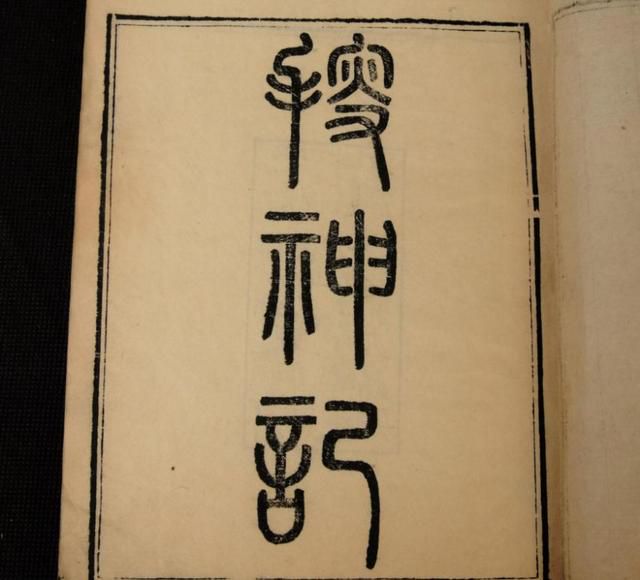 搜神記